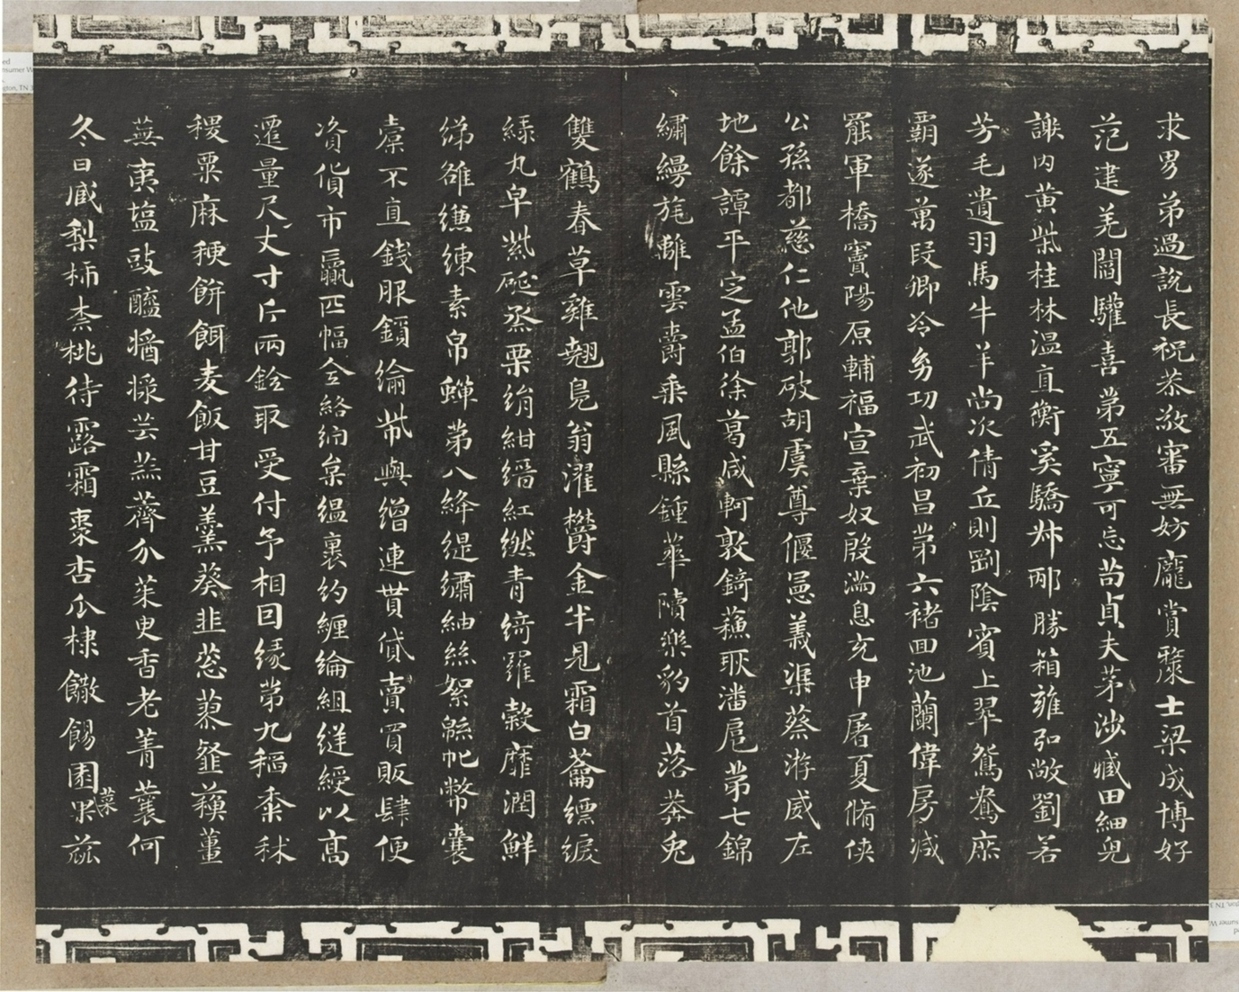 求男弟過說長祝恭敬審無妨龐賞贅士梁成博好
范建羌閻驩喜第五寧可忘苟貞夫茅涉臧田細兒
謝內黃柴桂林溫直衡奚驕叔邴勝箱雍弘敞劉若
芳毛遺羽馬牛羊尚次倩丘則劉陰賓上翠鴛鴦庶
霸遂萬段卿冷幼功武初昌第六褚回池蘭偉房減
罷軍橋竇陽原輔福宣棄奴殷滿息充申屠夏脩俠
公孫都慈仁他郭破胡虞尊偃憲義渠蔡游威左
地餘譚平定孟伯徐葛咸軻敦錡蘇耿潘扈第七錦
繡縵旄離雲爵乘風縣鍾華隤樂豹首落莽兔
雙鶴春草雞翹鳧翁濯鬱金半見霜白䉵縹綟
綠丸皁紫硟蒸栗絹紺縉紅繎青綺羅縠靡潤鮮
綈雒縑練素帛蟬第八絳緹繡紬絲絮緜帊幣囊
橐不直錢服鎖綸幣與繒連貰貸賣買販肆便
資貨市贏匹幅全絡納枲縕裏約纏綸組縫綬以高
遷量尺丈寸斤兩銓取受付予相因緣第九稻黍秫
稷粟麻稉餅餌麦飯甘豆羹葵韭蔥蓼韰蘇薑
蕪荑塩豉醯醬漿芸蒜薺介茱臾香老菁蘘何
冬日臧梨柿柰桃待露霜棗杏瓜棣饊餳園菜果茲